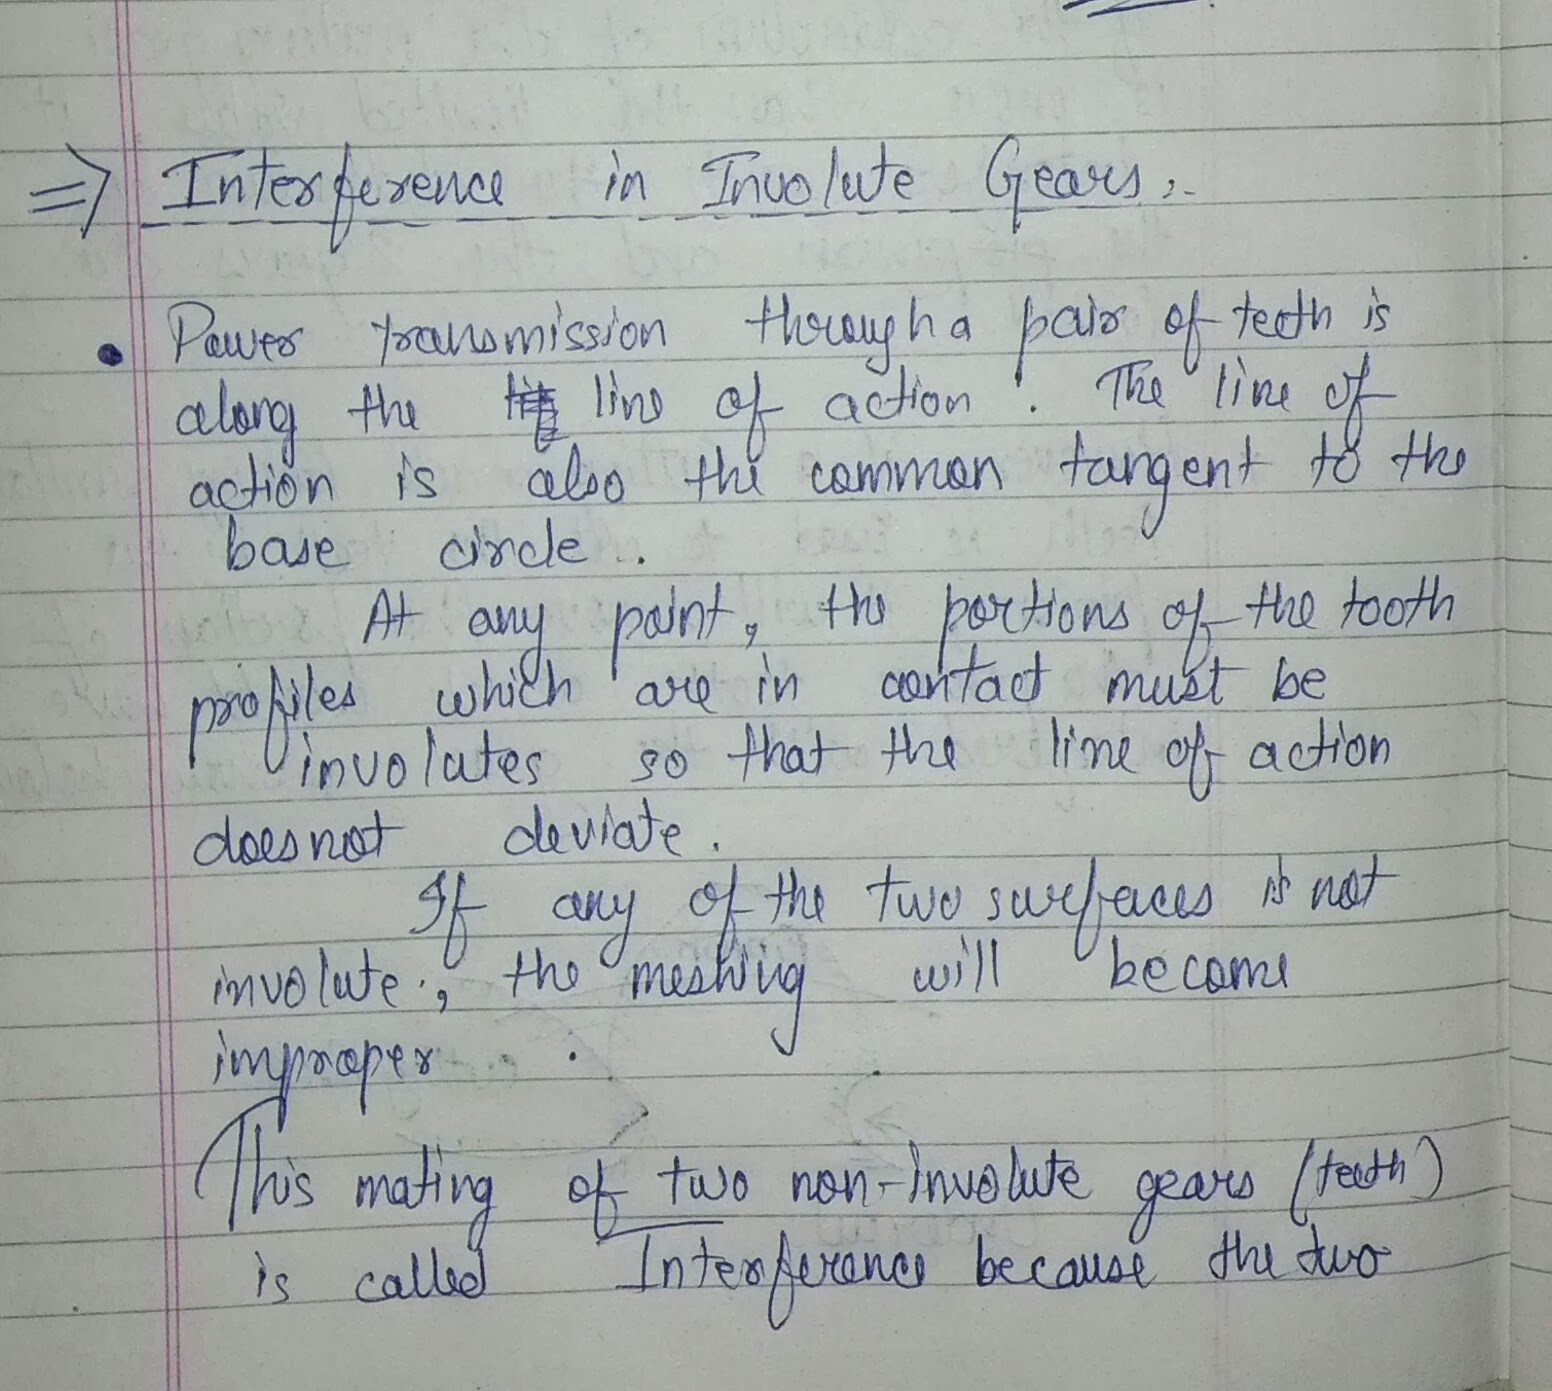 ⇒ Interference in Involute Gears :-
• Power transmission through a pair of teeth is
along the line of action. The line of
action is also the common tangent to the
base circle.
At any point, the portions of the tooth
profiles which are in contact must be
involutes so that the line of action
does not deviate.
If any of the two surfaces is not
involute, the meshing will become
improper.
This mating of two non-involute gears (teeth)
is called Interference because the two